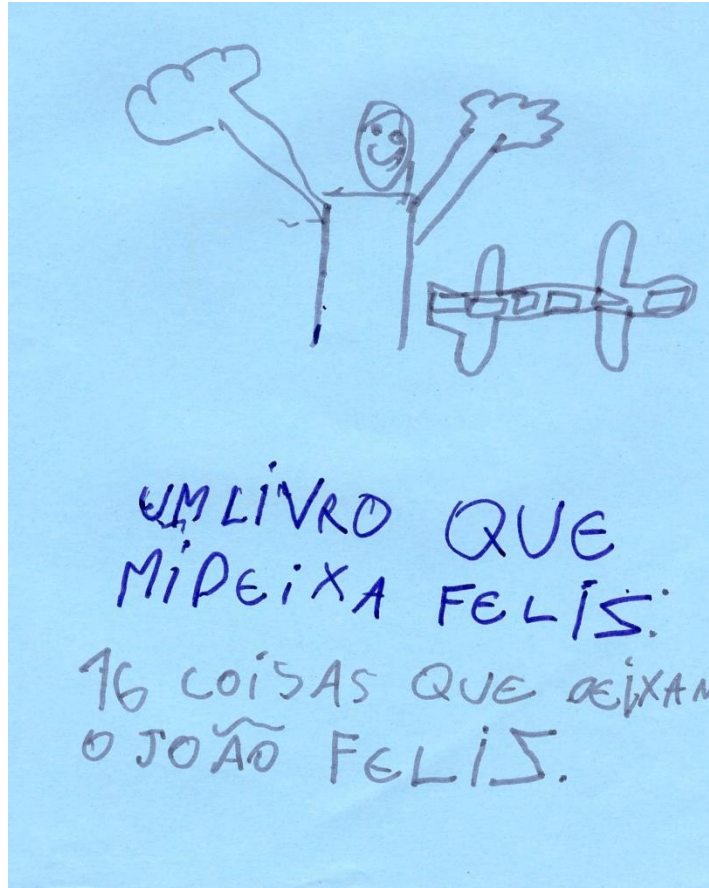 UM LIVRO QUE
MI DEIXA FELIS.
16 COISAS QUE DEIXAM
O JOÃO FELIS.